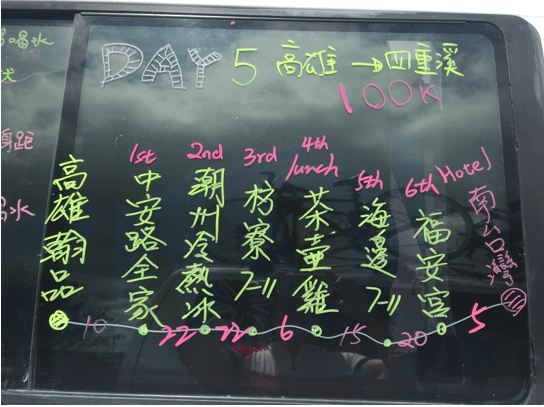 喝水
距
水
DAY 5 高雄→四重溪
100K
高雄翰品
1st
中安路全家
2nd
潮州冷熱冰
3rd
枋寮7-11
4th
lunch
茶壺雞
5th
海邊7-11
6th
福安宮
Hotel
南台灣
10 22 22 6 15 20 5